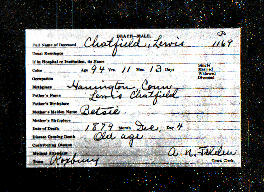 DEATH—MALE.
Full Name of Deceased Chatfield, Lewis 1169
Usual Residence
If in Hospital or Institution, its Name
Color Age 94 Yrs. 11 Mos. 13 Days Single Married Widowed Divorced
Occupation
Birthplace Harrington, Conn
Father's Name Lewis Chatfield
Father's Birthplace
Mother's Maiden Name Betsie
Mother's Birthplace
Date of Death 1879 Month Dec. Day 4
Disease Causing Death Old age
Contributing Disease
Medical Attendant A. N.
Town Roxbury Town Clerk.